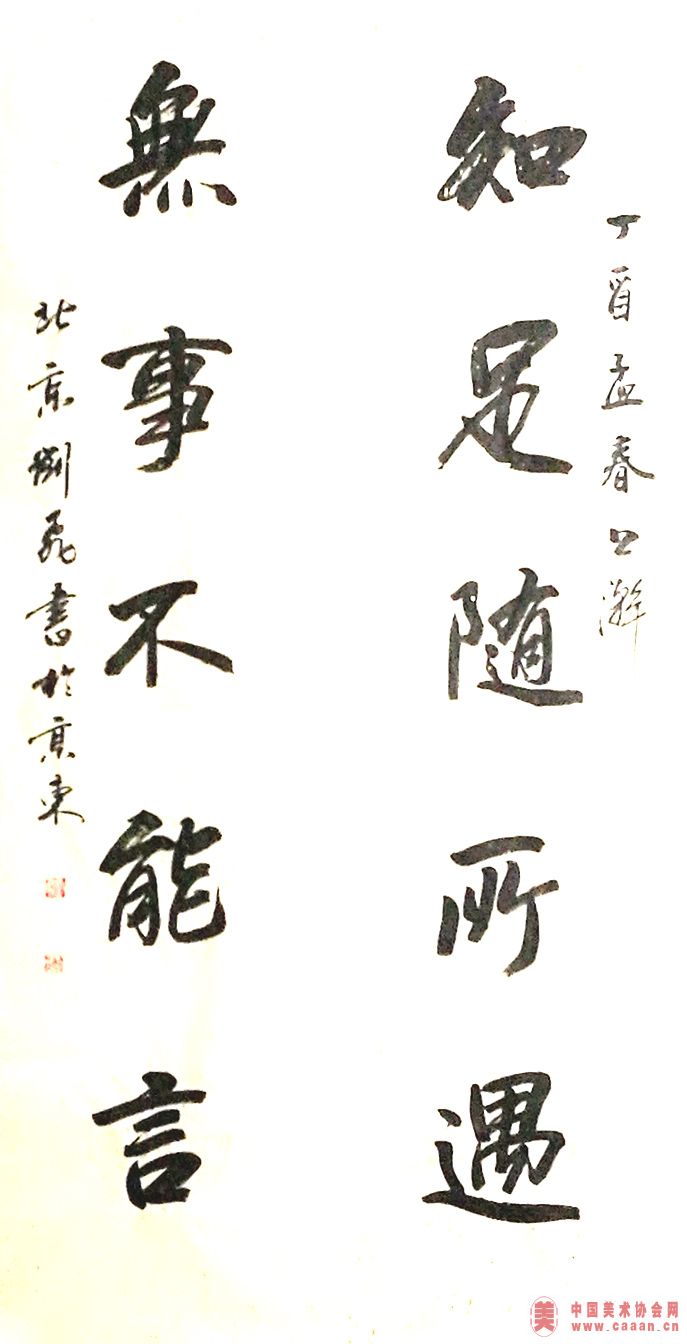 丁酉孟春上澣
知足随所遇
無事不能言
北京刘飛書於京東
中国美术协会网
www.caaan.cn